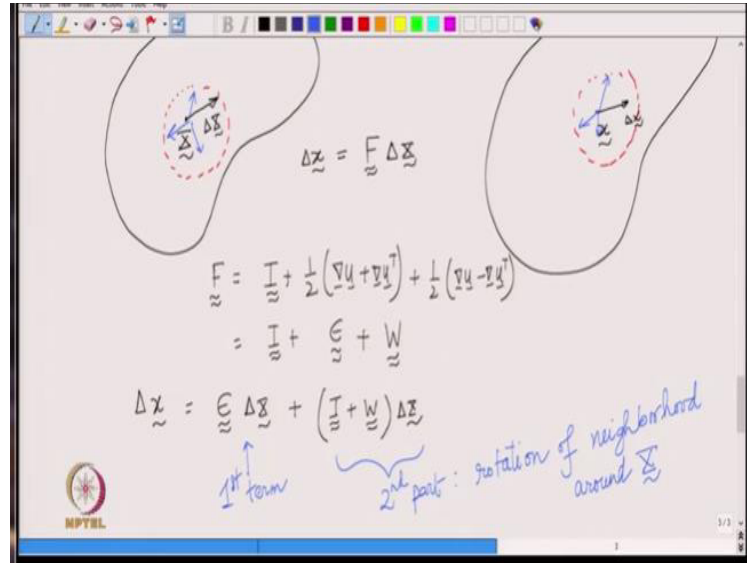 X̰ ΔX̰
x̰ Δx̰
Δx̰ = F̰ ΔX̰
F̰ = Ḭ + 1/2 (∇u + ∇uᵀ) + 1/2 (∇u - ∇uᵀ)
= Ḭ + ϵ̰ + W̰
Δx̰ = ϵ̰ ΔX̰ + (Ḭ + W̰) ΔX̰
1st term
2nd part : rotation of neighborhood
around X̰
NPTEL
3/3